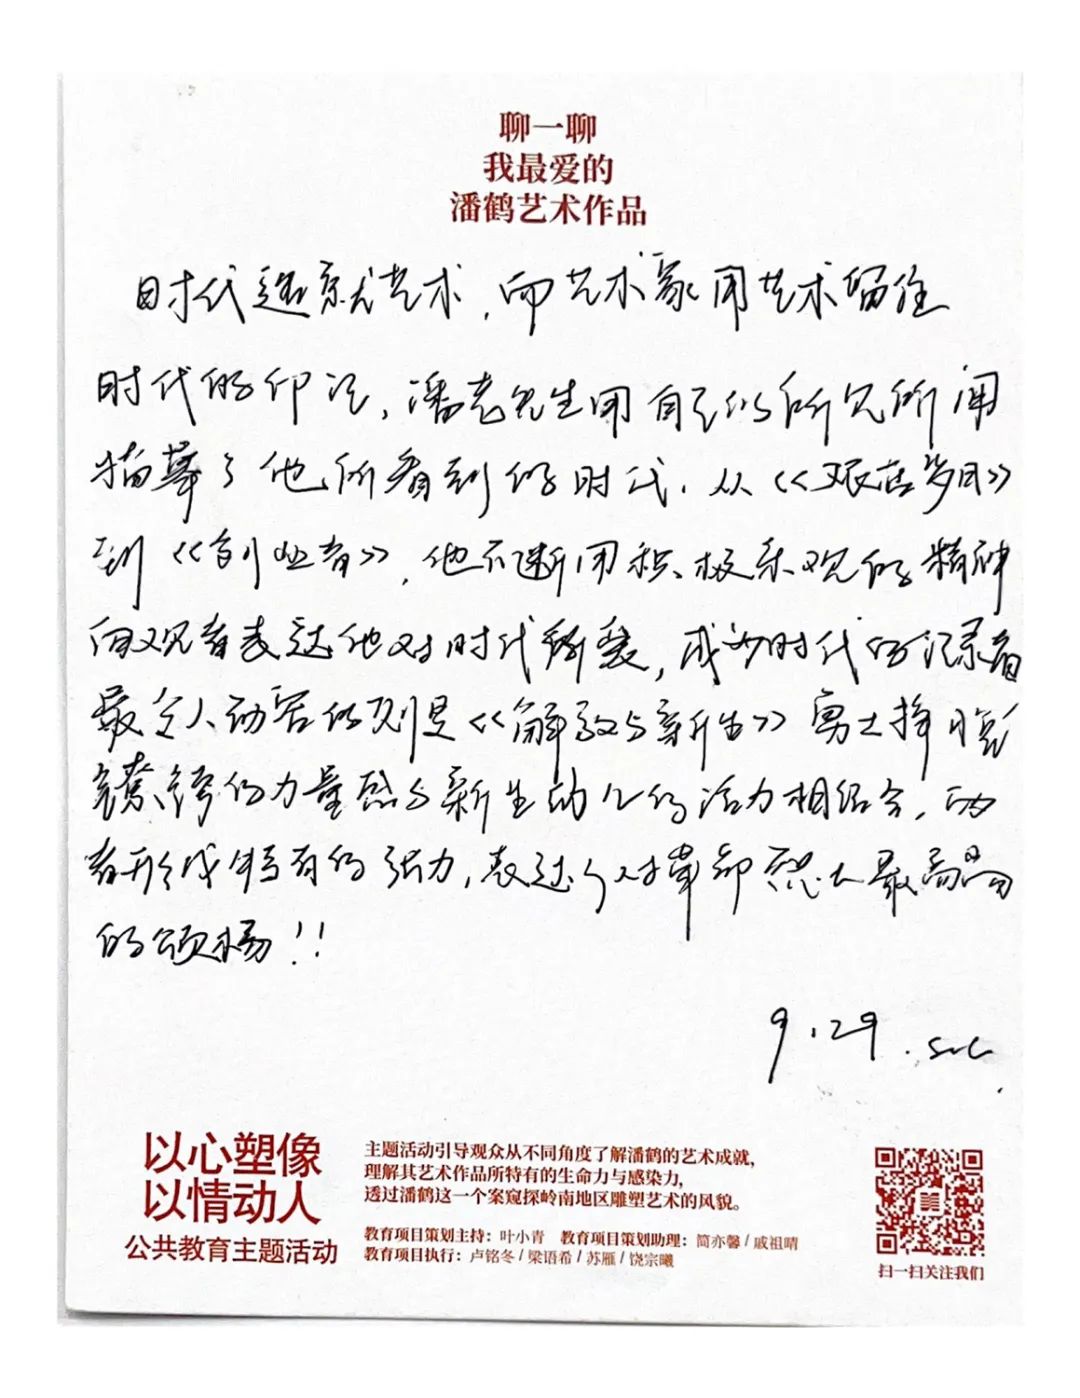 聊一聊
我最爱的
潘鹤艺术作品
时代造就艺术，而艺术家用艺术留住
时代的印记，潘老先生用自己的所见所闻
描摹了他所看到的时代．从《艰苦岁月》
到《创业者》，他不断用积极乐观的精神
向观者表达他对时代，成为时代的记录者
最令人动容的则是《解放与新生》勇士挣脱
镣铐的力量感与新生幼儿的活力相结合，两
者形成特有的张力，表达了对革命烈士最高
的颂扬！！
9.29.
以心塑像
以情动人
公共教育主题活动
主题活动引导观众从不同角度了解潘鹤的艺术成就，
理解其艺术作品所特有的生命力与感染力，
透过潘鹤这一个案窥探岭南地区雕塑艺术的风貌。
教育项目策划主持：叶小青 教育项目策划助理：简亦馨 / 戚祖晴
教育项目执行：卢铭冬 / 梁语希 / 苏雁 / 饶宗曦
扫一扫关注我们